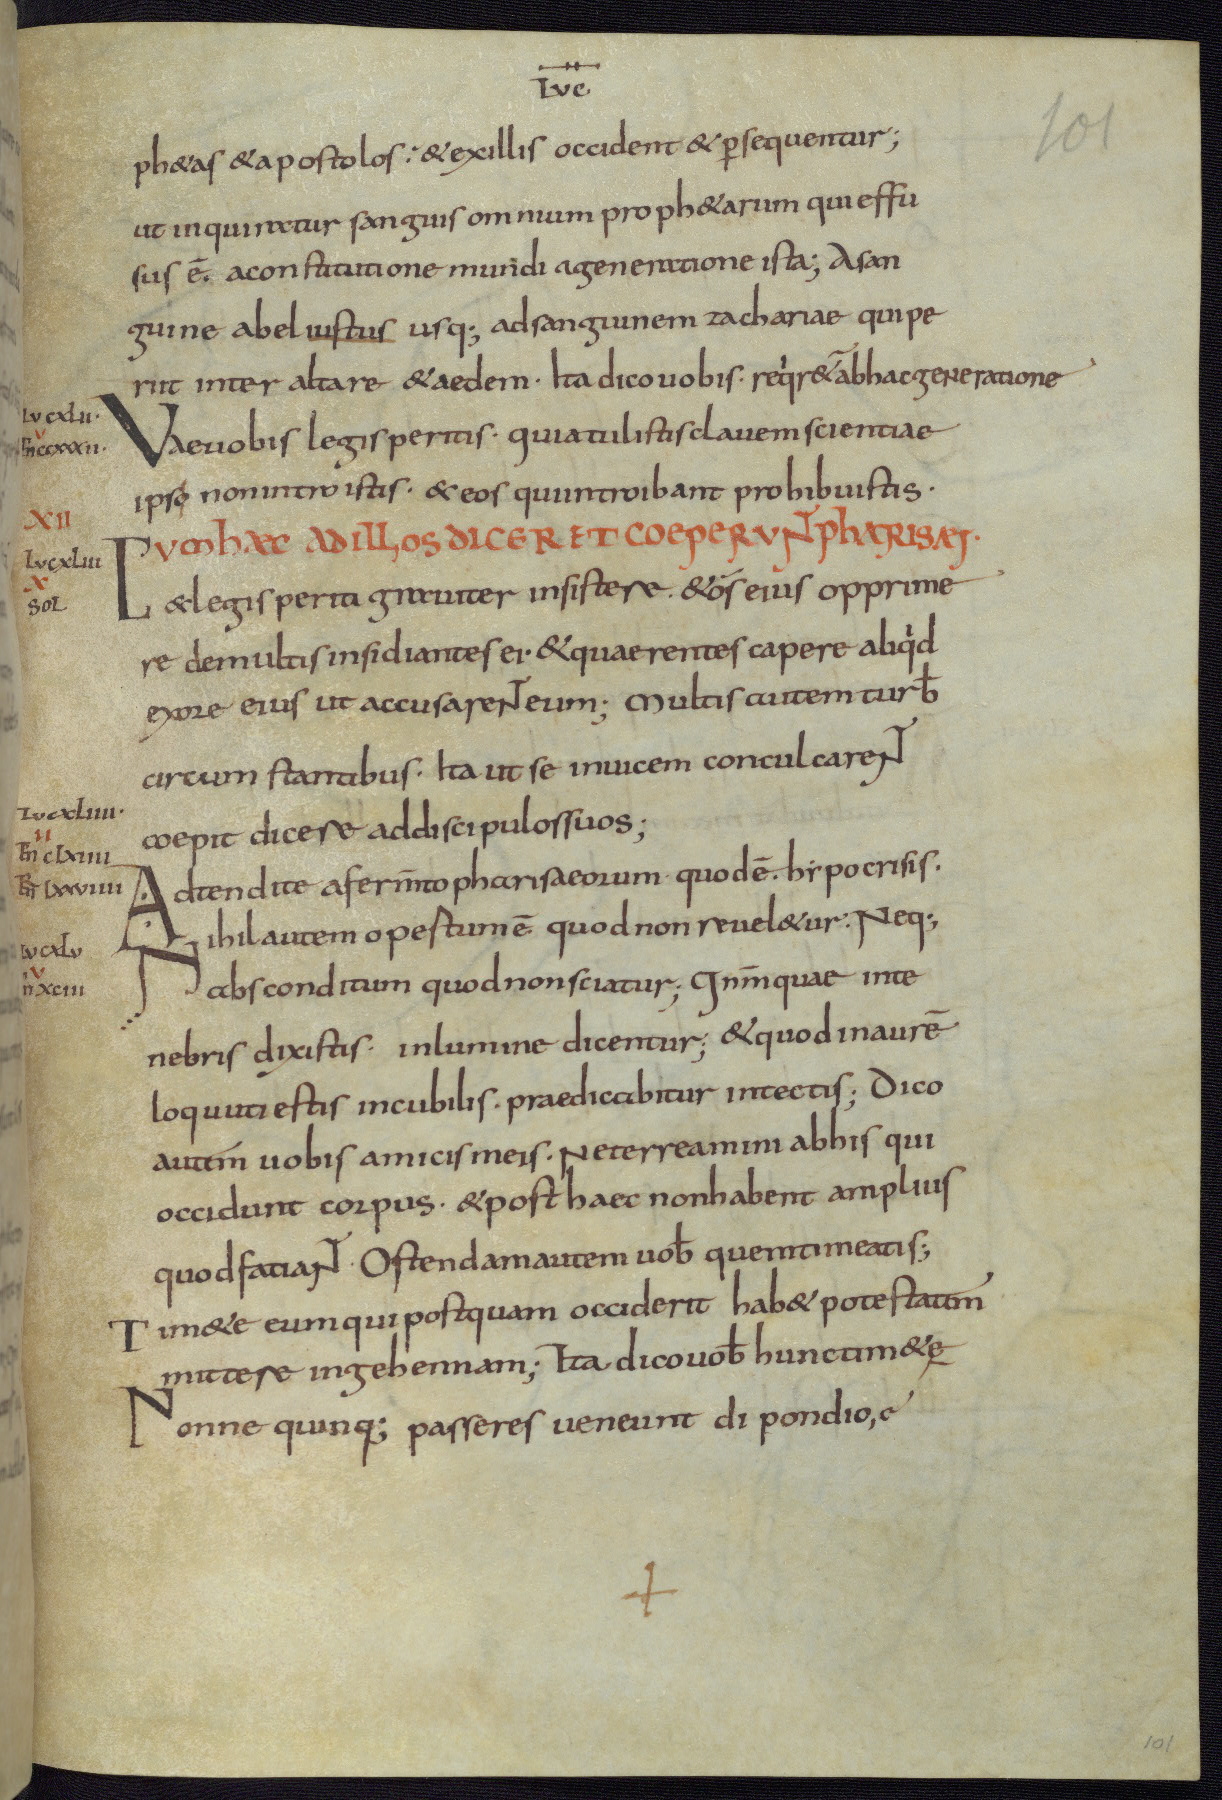 Luc
101
ph&as & apostolos: & ex illis occident & persequentur;
ut inquiratur sanguis omnium proph&arum qui effu
sus ē. a constitutione mundi a generatione ista; A san
guine abel iustus usq; ad sanguinem zachariae qui pe
riit inter altare & aedem. Ita dico uobis. reqir&̄ ab hac generatione
Luc xlii.
Vae uobis legis peritis. quia tulistis clauem scientiae
ipse non introistis. & eos qui introibant prohibuistis.
XII
CUM haec AD ILLOS DICERET COEPERUNT pharisaei.
Luc xliii
X
SOL
& legis periti grauiter insistere. & ōs eius opprime
re de multis insidiantes ei. & quaerentes capere aliqid
ex ore eius ut accusarent eum; Multis autem turb̄
circum stantibus. Ita ut se inuicem conculcarent
Luc xliiii.
coepit dicere ad discipulos suos;
II
clxiiii
lxxviiii
Adtendite a fermto pharisaeorum quod ē. hypocrisis.
Nihil autem opertum ē quod non reuel&ur: Neq;
Luc xlv
V
xciii
absconditum quod non sciatur; Qnm quae inte
nebris dixistis. in lumine dicentur; & quod in aurē
loquuti estis in cubilis. praedicabitur in tectis; Dico
autm̄ uobis amicis meis. Ne terreamini ab his qui
occidunt corpus. & post haec non habent amplius
quod fatiant. Ostendam autem uob̄ quem timeatis;
Tim&e eum qui postquam occiderit hab& potestatm̄
mittere in gehennam; Ita dico uob̄ hunc tim&e
Nonne quinq; passeres ueneunt dipondio,
101